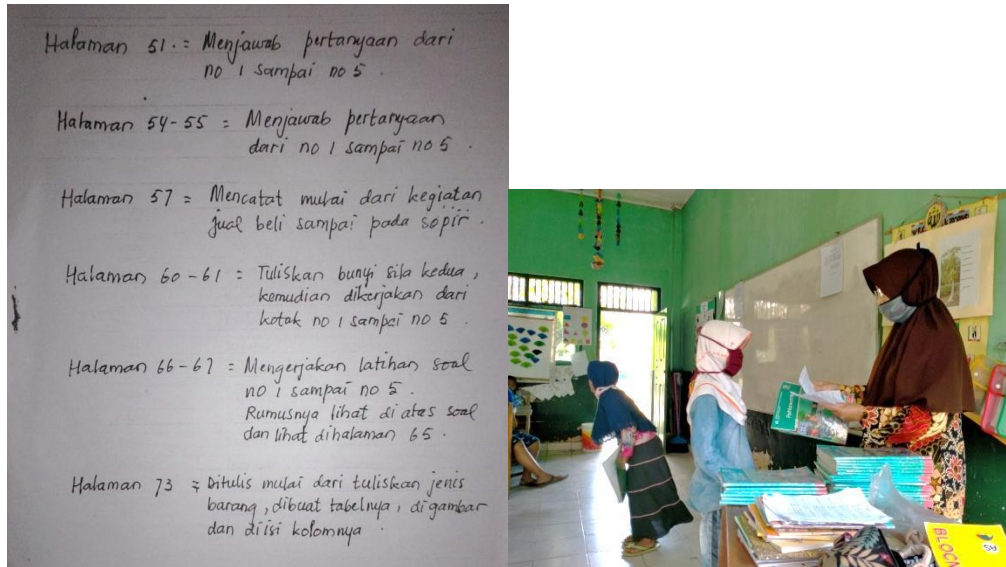 Halaman 51. = Menjawab pertanyaan dari
no 1 sampai no 5.
Halaman 54-55 = Menjawab pertanyaan
dari no 1 sampai no 5.
Halaman 57 = Mencatat mulai dari kegiatan
jual beli sampai pada sopir.
Halaman 60-61 = Tuliskan bunyi sila kedua,
kemudian dikerjakan dari
kotak no 1 sampai no 5.
Halaman 66-67 = Mengerjakan latihan soal
no 1 sampai no 5.
Rumusnya lihat di atas soal
dan lihat dihalaman 65.
Halaman 73 = Ditulis mulai dari tuliskan jenis
barang, dibuat tabelnya, digambar
dan diisi kolomnya
BLOCN